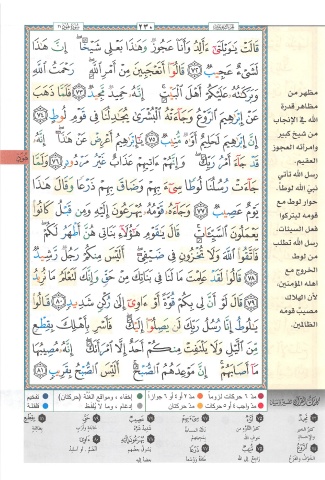 ٢٣٠
قَالَتْ يَٰوَيْلَتَىٰٓ ءَأَلِدُ وَأَنَا۠ عَجُوزٌ وَهَٰذَا بَعْلِى شَيْخًا ۖ إِنَّ هَٰذَا
لَشَىْءٌ عَجِيبٌ ﴿٧٢﴾ قَالُوٓا۟ أَتَعْجَبِينَ مِنْ أَمْرِ ٱللَّهِ ۖ رَحْمَتُ ٱللَّهِ
وَبَرَكَٰتُهُۥ عَلَيْكُمْ أَهْلَ ٱلْبَيْتِ ۚ إِنَّهُۥ حَمِيدٌ مَّجِيدٌ ﴿٧٣﴾ فَلَمَّا ذَهَبَ
عَنْ إِبْرَٰهِيمَ ٱلرَّوْعُ وَجَآءَتْهُ ٱلْبُشْرَىٰ يُجَٰدِلُنَا فِى قَوْمِ لُوطٍ ﴿٧٤﴾
إِنَّ إِبْرَٰهِيمَ لَحَلِيمٌ أَوَّٰهٌ مُّنِيبٌ ﴿٧٥﴾ يَٰٓإِبْرَٰهِيمُ أَعْرِضْ عَنْ هَٰذَآ ۖ إِنَّهُۥ
قَدْ جَآءَ أَمْرُ رَبِّكَ ۖ وَإِنَّهُمْ ءَاتِيهِمْ عَذَابٌ غَيْرُ مَرْدُودٍ ﴿٧٦﴾ وَلَمَّا
جَآءَتْ رُسُلُنَا لُوطًا سِىٓءَ بِهِمْ وَضَاقَ بِهِمْ ذَرْعًا وَقَالَ هَٰذَا
يَوْمٌ عَصِيبٌ ﴿٧٧﴾ وَجَآءَهُۥ قَوْمُهُۥ يُهْرَعُونَ إِلَيْهِ وَمِن قَبْلُ كَانُوا۟
يَعْمَلُونَ ٱلسَّيِّـَٔاتِ ۚ قَالَ يَٰقَوْمِ هَٰٓؤُلَآءِ بَنَاتِى هُنَّ أَطْهَرُ لَكُمْ ۖ
فَٱتَّقُوا۟ ٱللَّهَ وَلَا تُخْزُونِ فِى ضَيْفِىٓ ۖ أَلَيْسَ مِنكُمْ رَجُلٌ رَّشِيدٌ
﴿٧٨﴾ قَالُوا۟ لَقَدْ عَلِمْتَ مَا لَنَا فِى بَنَاتِكَ مِنْ حَقٍّ وَإِنَّكَ لَتَعْلَمُ مَا نُرِيدُ
﴿٧٩﴾ قَالَ لَوْ أَنَّ لِى بِكُمْ قُوَّةً أَوْ ءَاوِىٓ إِلَىٰ رُكْنٍ شَدِيدٍ ﴿٨٠﴾ قَالُوا۟
يَٰلُوطُ إِنَّا رُسُلُ رَبِّكَ لَن يَصِلُوٓا۟ إِلَيْكَ ۖ فَأَسْرِ بِأَهْلِكَ بِقِطْعٍ
مِّنَ ٱلَّيْلِ وَلَا يَلْتَفِتْ مِنكُمْ أَحَدٌ إِلَّا ٱمْرَأَتَكَ ۖ إِنَّهُۥ مُصِيبُهَا
مَآ أَصَابَهُمْ ۚ إِنَّ مَوْعِدَهُمُ ٱلصُّبْحُ ۚ أَلَيْسَ ٱلصُّبْحُ بِقَرِيبٍ ﴿٨١﴾
مظهر من
مظاهر قدرة
الله في الإنجاب
من شيخ كبير
وامرأته العجوز
العقيم.
رسل الله تأتي
نبيّ الله لوطاً.
حوار لوط مع
قومه ليتركوا
فعل السيئات.
رسل الله تطلب
من لوط
الخروج مع
أهله المؤمنين،
لأن الهلاك
مصيب قومه
الظالمين.
مد ٦ حركات لزوماً
مد ٢ أو ٤ أو ٦ جوازاً
إخفاء، ومواقع الغنّة (حركتان)
تفخيم
مد واجب ٤ أو ٥ حركات
مد حركتان
إدغام، وما لا يُلفظ
قلقلة